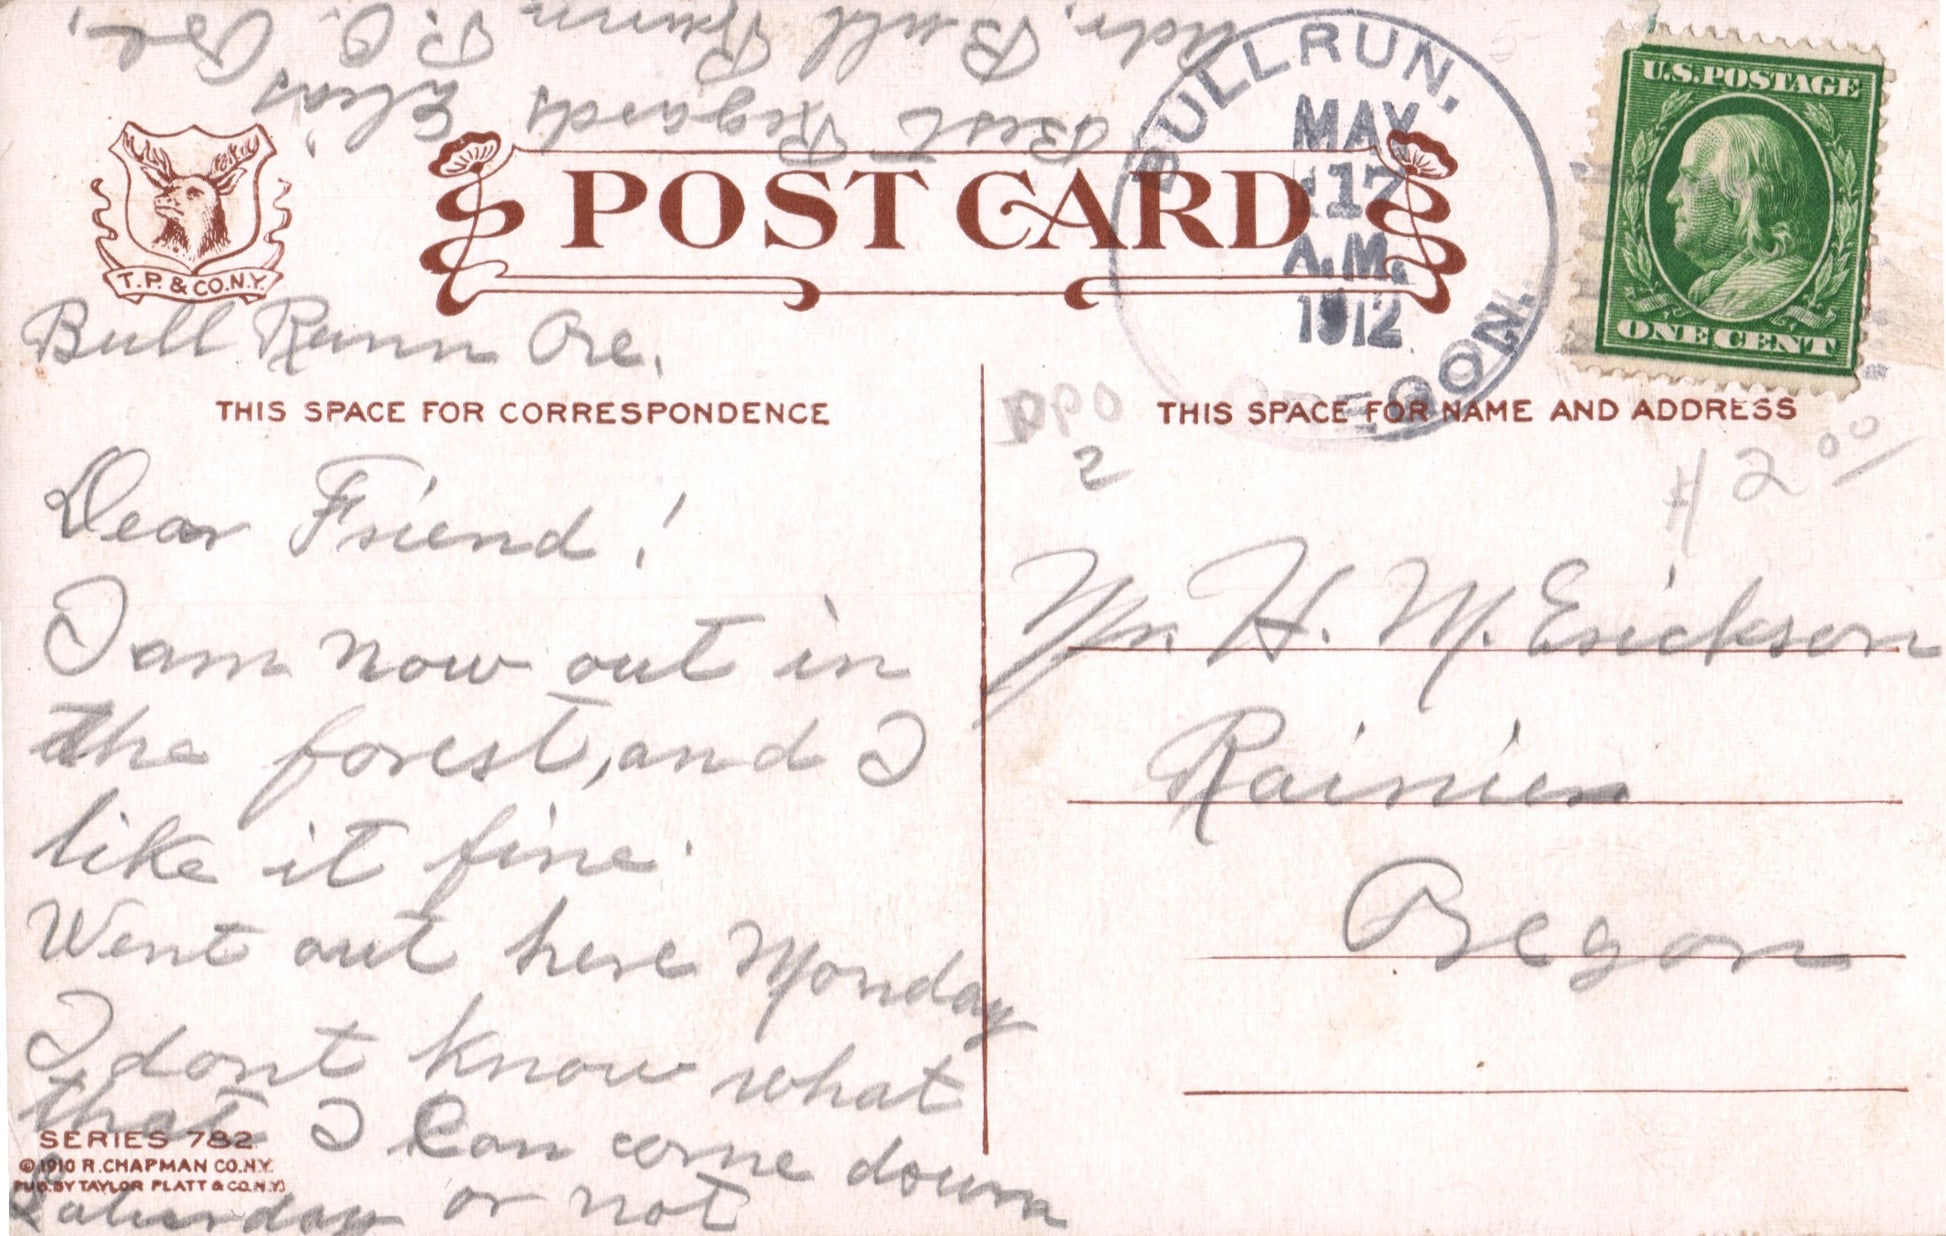 Best Regards Elias
Adr, Bull Runn P. O. Ore,
BULL RUN,
MAY
17
A.M.
1912
OREGON.
U.S. POSTAGE
ONE CENT
T. P. & CO. N.Y.
POST CARD
Bull Runn Ore.
THIS SPACE FOR CORRESPONDENCE
THIS SPACE FOR NAME AND ADDRESS
DPO
2
$2.00
Dear Friend!
I am now out in
the forest, and I
like it fine.
Went out here Monday
I dont know what
that I Can come down
Saturday or not
Mr. H. M. Erickson
Rainier
Oregon
SERIES 782
© 1910 R. CHAPMAN CO. N.Y.
PUB. BY TAYLOR PLATT & CO. N.Y.